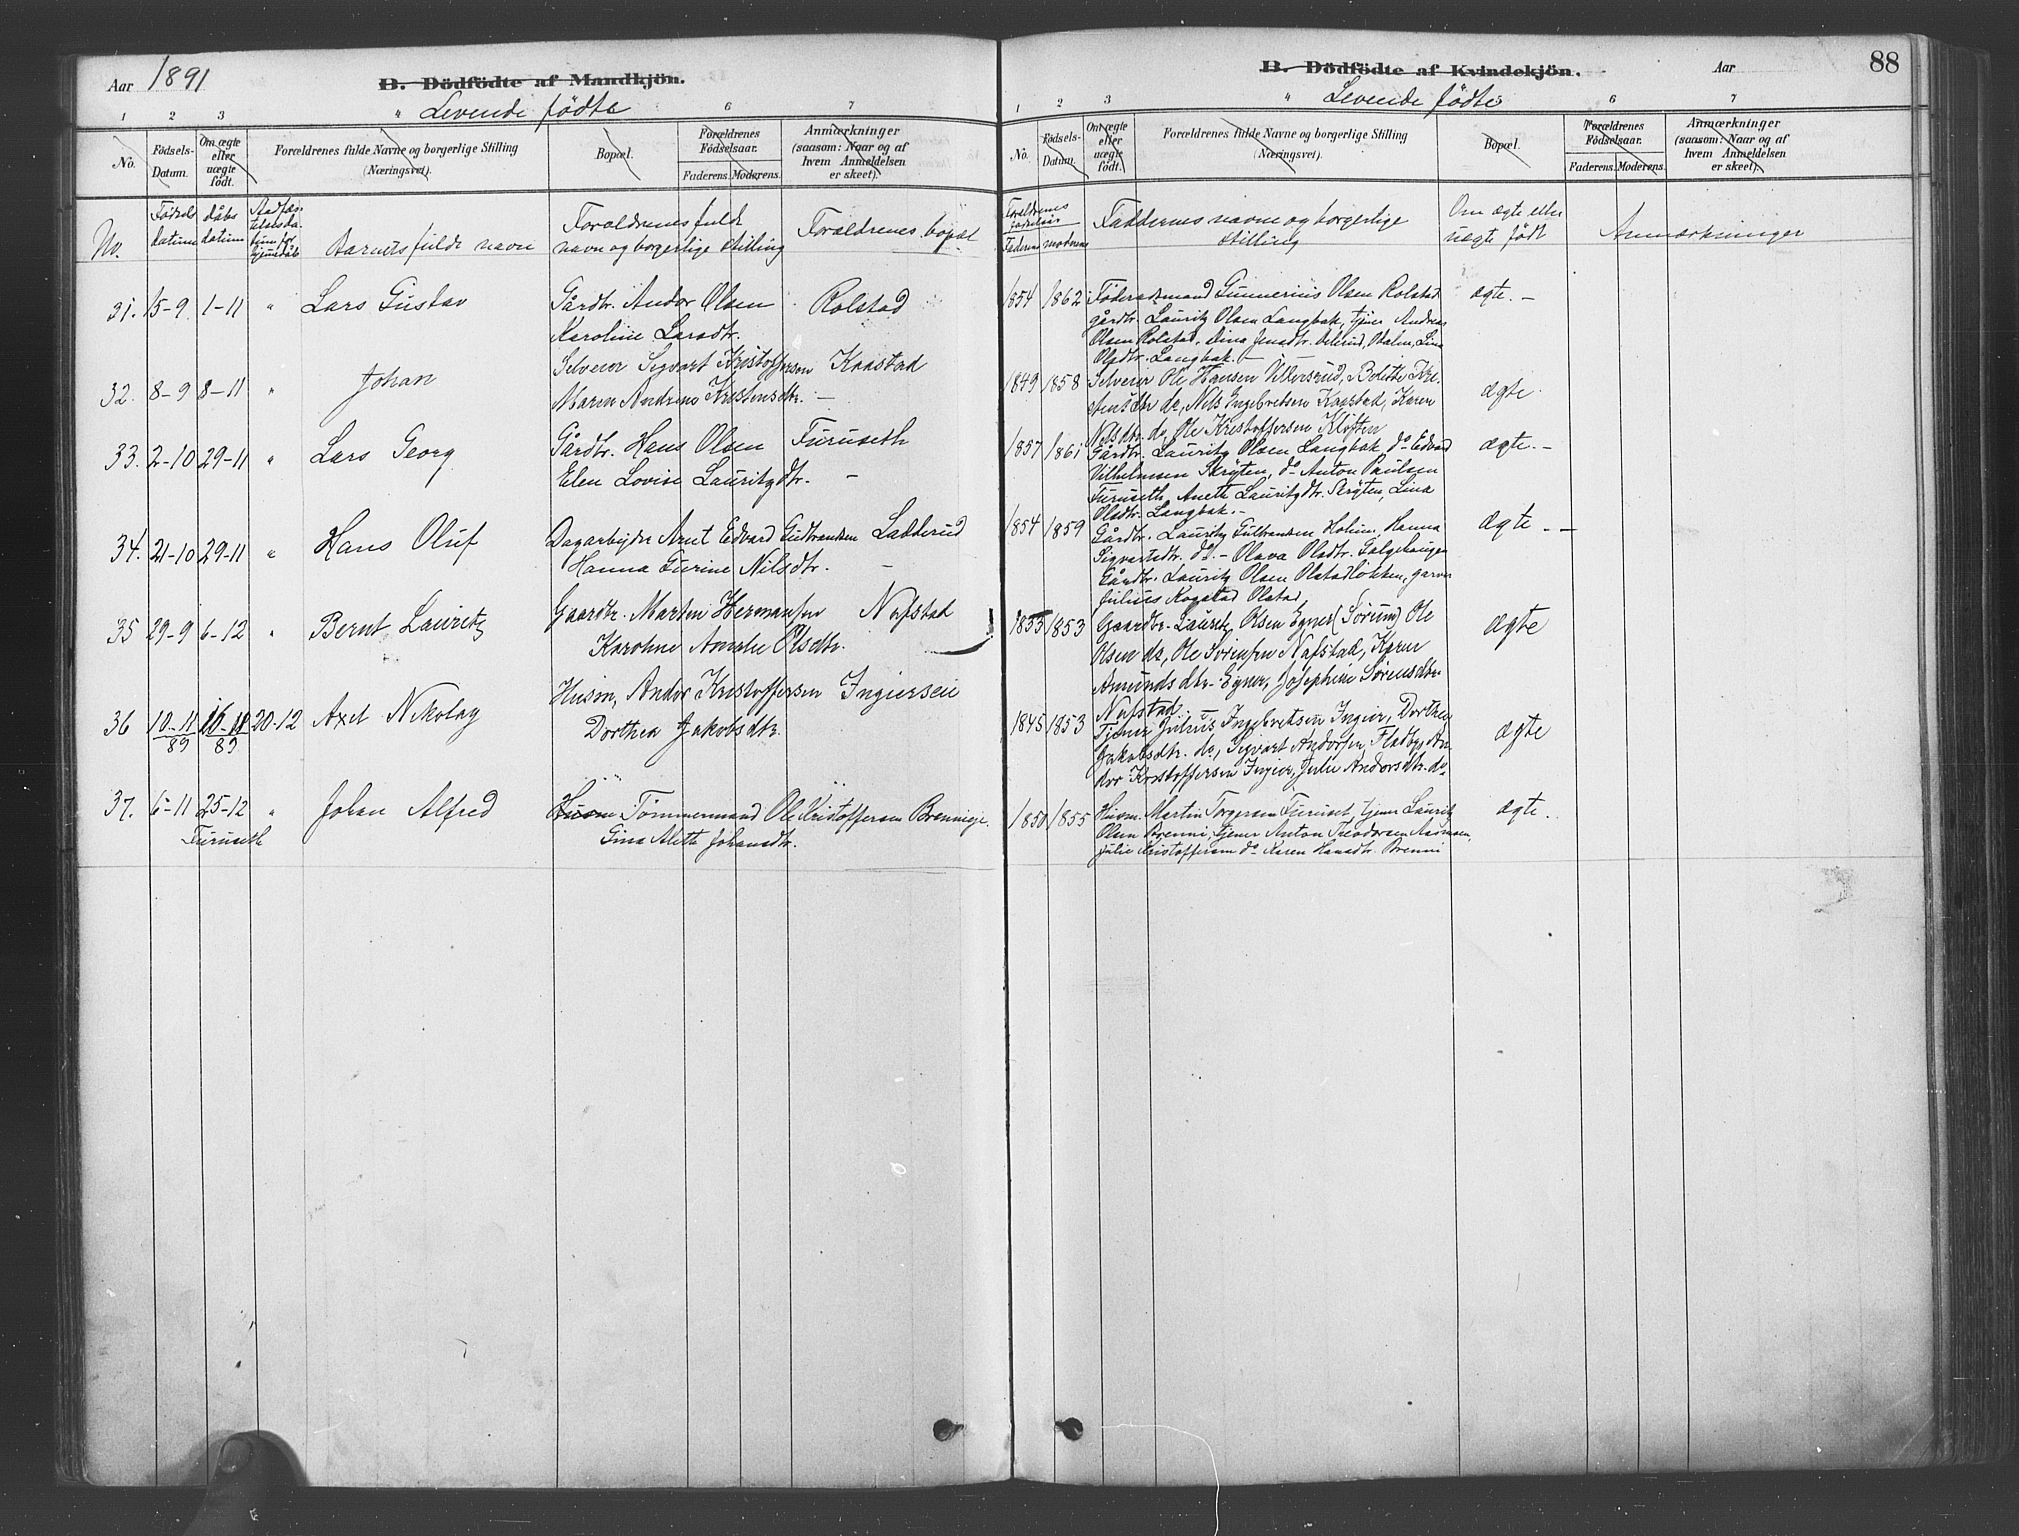 Aar 1891
B. Dödfödte af Mandkjön.
Levende fødte
1 2 3 4 6 7
No.
Födsels-
Datum.
Om ægte
eller
uægte
födt.
Forældrenes fulde Navne og borgerlige Stilling
(Næringsvei).
Bopæl.
Forældrenes
Födselsaar.
Faderens. Moderens.
Anmærkninger
(saasom: Naar og af
hvem Anmeldelsen
er skeet).
No.
Fødsels
datum
dåbs
datum
Barnets fulde navn
Forældrenes fulde
navn og borgerlige stilling
Forældrenes bopæl
31. 15-9 1-11 " Lars Gustav
Gårdbr. Andor Olsen Rolstad
Karoline Larsdtr.
32. 8-9 8-11 " Johan
Selveier Sigvart Kristoffersen Kaastad
Maren Andrine Kristensdtr. —
33. 2-10 29-11 " Lars Georg
Gårdbr. Hans Olsen Furuseth
Elen Lovise Lauritzdtr. —
34. 21-10 29-11 " Hans Oluf
Dagarbejder Arnt Edvard Gulbransen Ladderud
Hanna Gurine Nilsdtr. —
35 29-9 6-12 " Bernt Lauritz
Gaardbr. Martin Hermansen Nafstad
Karoline Amalie Olsdtr.
36 10-11 16-11 20-12 Axel Nikolay
89 89
Husm. Andor Kristoffersen Ingierseie
Dorthea Jakobsdtr.
37. 6-11 25-12 " Johan Alfred
Furuseth
Husm Tømmermand Ole Kristoffersen Brennieje.
Gina Mette Johansdtr.
88
B. Dödfödte af Kvindekjön.
Aar
Levende fødte
1 2 3 4 5 6 7
No.
Födsels-
Datum.
Om ægte
eller
uægte
födt.
Forældrenes fulde Navne og borgerlige Stilling
(Næringsvei).
Bopæl.
Forældrenes
Födselsaar.
Faderens. Moderens.
Anmærkninger
(saasom: Naar og af
hvem Anmeldelsen
er skeet).
Forældrenes
fødselsår
Faderens moderens
Faddernes navne og borgerlige
stilling
Om ægte eller
uægte født
Anmærkninger
1854 1862 Føderaadsmand Gunnerius Olsen Rolstad ægte. —
gårdbr. Lauritz Olsen Langbak, tjener Andreas
Olsen Rolstad, Dina Jensdtr. Odalen, Lina
Olsdtr. Langbak. —
1849 1858 Selveier Ole Hansen Ukkersrud, Bolette Kri- ægte.
stensdtr do, Nils Ingebretsen Kaastad, Karen
Nilsdtr. do, Ole Kristoffersen Kløften
1857 1861 Gårdbr. Lauritz Olsen Langbak, do Edvard ægte. —
Vilhelmsen Skryten, do Anton Paulsen
Furuseth, Anette Lauritzdtr. Skryten, Lina
Olsdtr. Langbak. —
1854 1859 Gårdbr. Lauritz Gulbransen Holum, Hanna ægte. —
Sigvartsdtr. do. — Olava Olsdtr. Salgehaugen
Gårdbr. Lauritz Olsen Olstadløkken, garver
Julius Kogstad Olstad
1853 1853 Gaardbr. Lauritz Olsen Egner (Sørum) Ole ægte
Olsen do, Ole Sørensen Nafstad, Karen
Amundsdtr. Egner, Josephine Sørensdtr.
Nafstad. —
1845 1853 Tjener Julius Ingebretsen Ingier, Dorthea ægte
Jakobsdtr. do, Sigvart Andorsen Fladby, An-
dor Kristoffersen Ingier, Julie Andorsdtr. do
1850 1855 Husm. Martin Torgersen Furuset, tjener Lauritz ægte.
Olsen Brenni, tjener Anton Theodorsen Aasmoen,
Julie Kristoffersen do Karen Hansdtr. Brenni